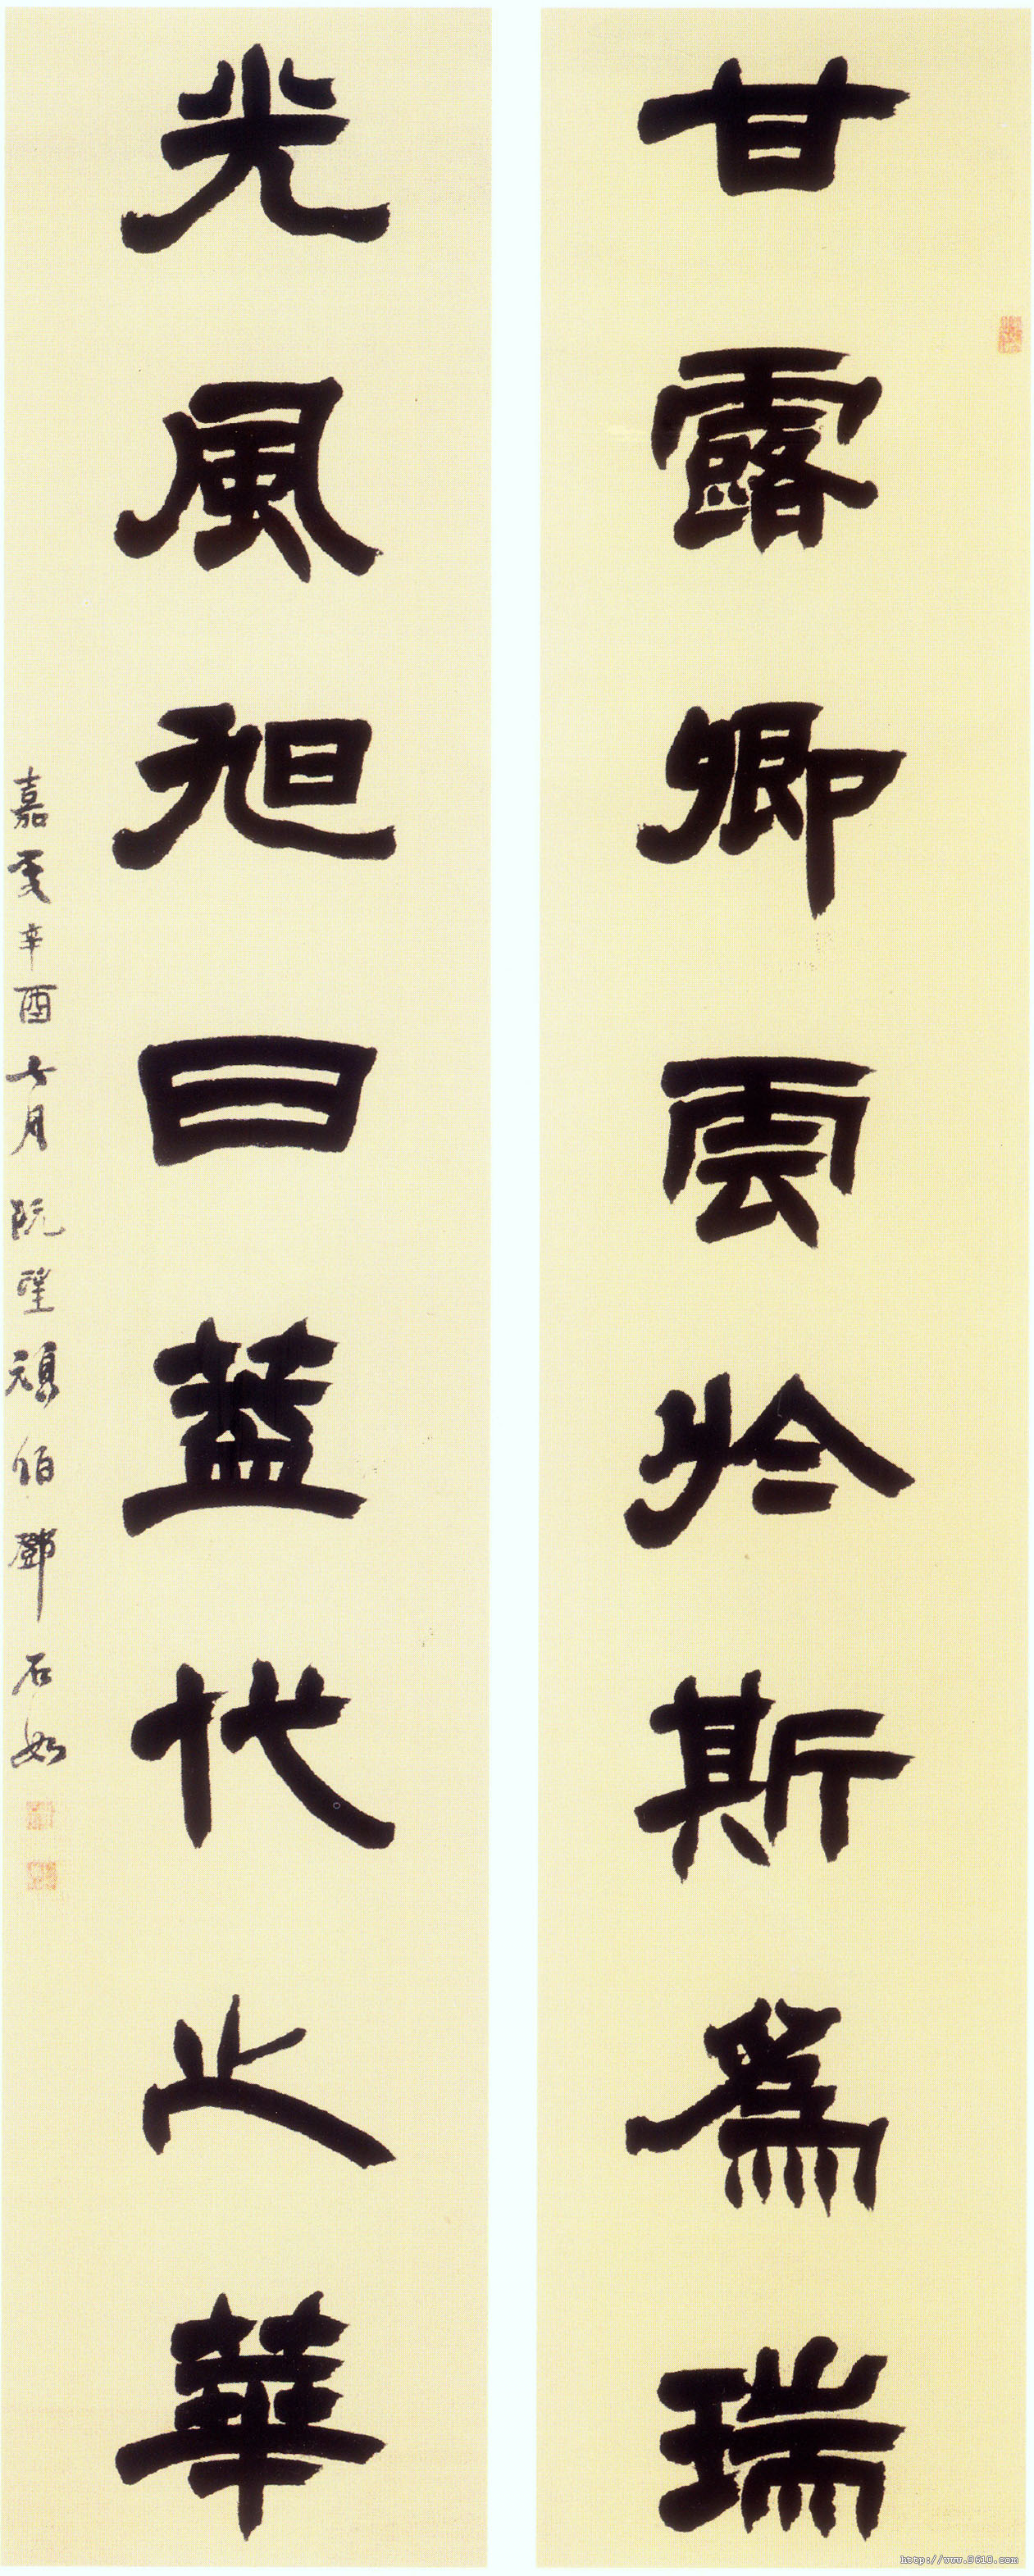 甘露卿雲於斯爲瑞
光風旭日蓋代之華
嘉慶辛酉七月既望頑伯鄧石如
http://www.9610.com